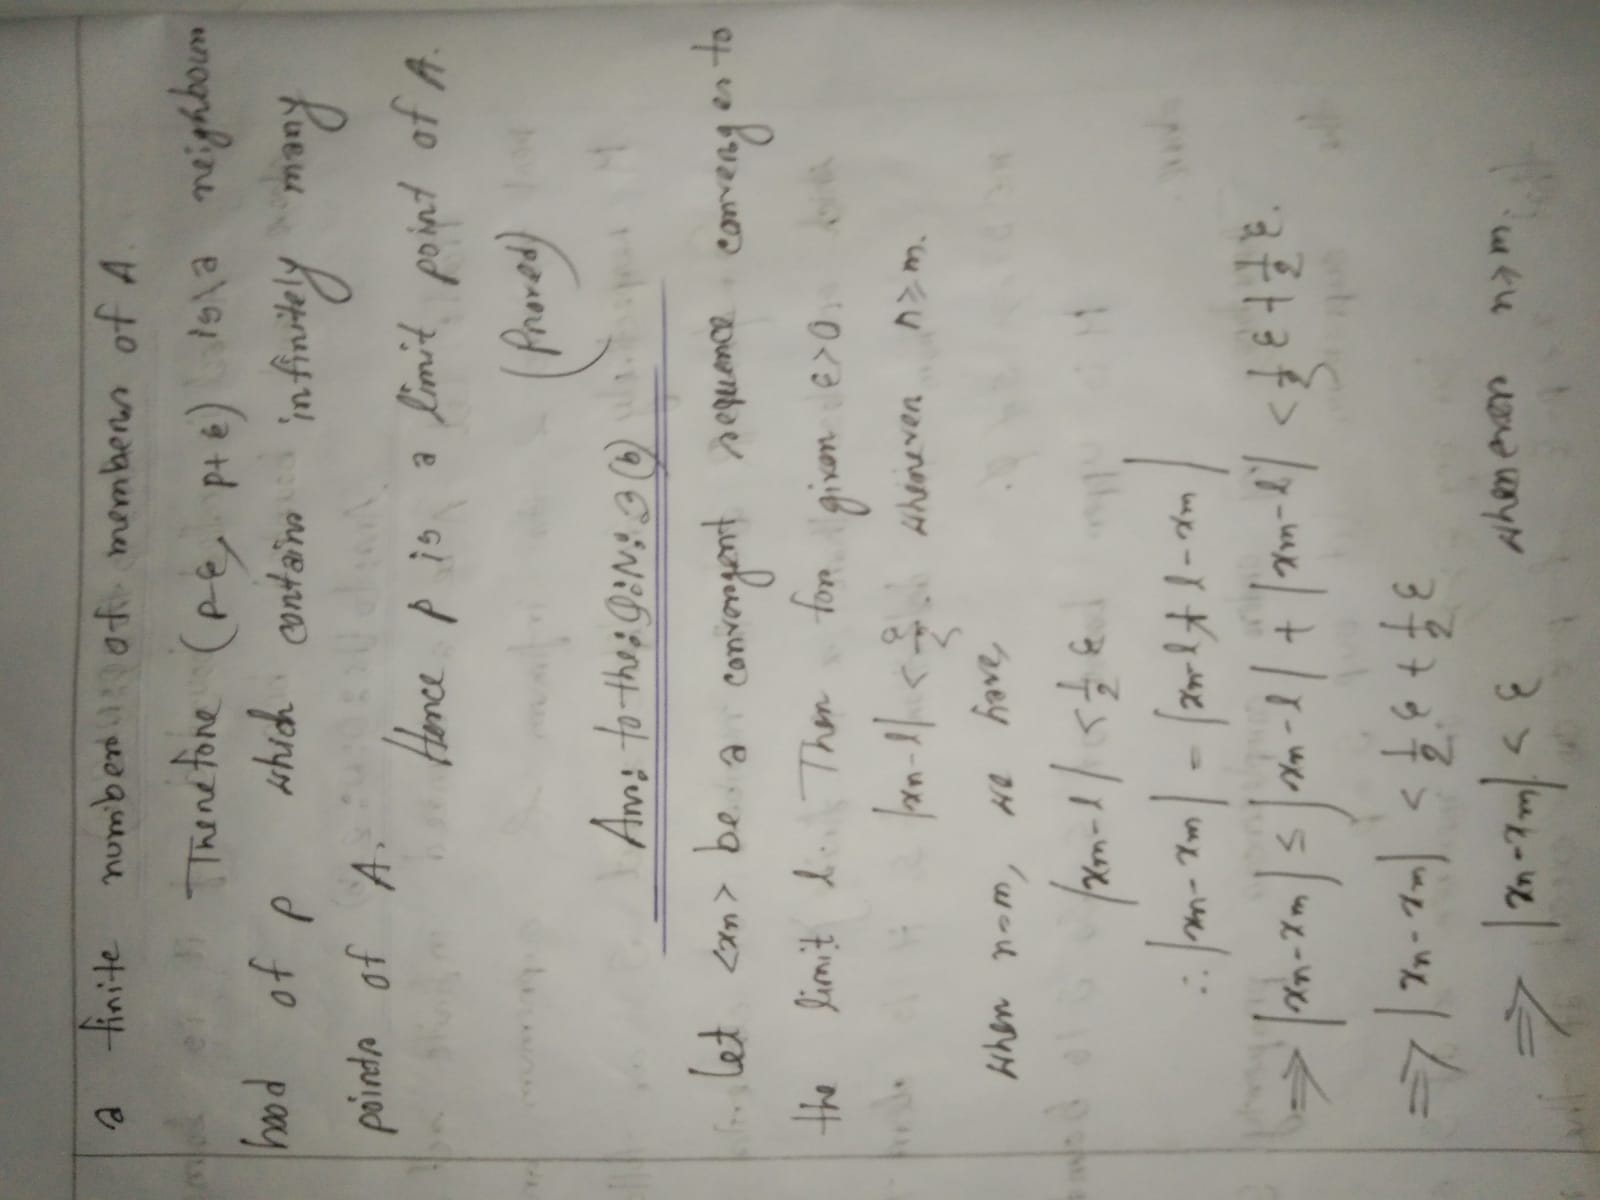 a finite number of members of A.
Therefore (p-ε, p+ε) is a neighbour
hood of p which contains infinitely many
points of A. Hence p is a limit point of A.
(Proved)
Ans: to the: Q: N: 3 (b)
Let <xn> be a convergent sequence converges to
the limit l. Then for given ε>0.
|xn-l| < ε/2 whenever n≥m.
when n=m, we have,
|xm-l| < 1/2 ε
∴ |xn-xm| = |xn-l+l-xm|
⇒ |xn-xm| ≤ |xn-l| + |xm-l| < 1/2 ε + 1/2 ε.
⇒ |xn-xm| < 1/2 ε + 1/2 ε
⇒ |xn-xm| < ε whenever n≥m.